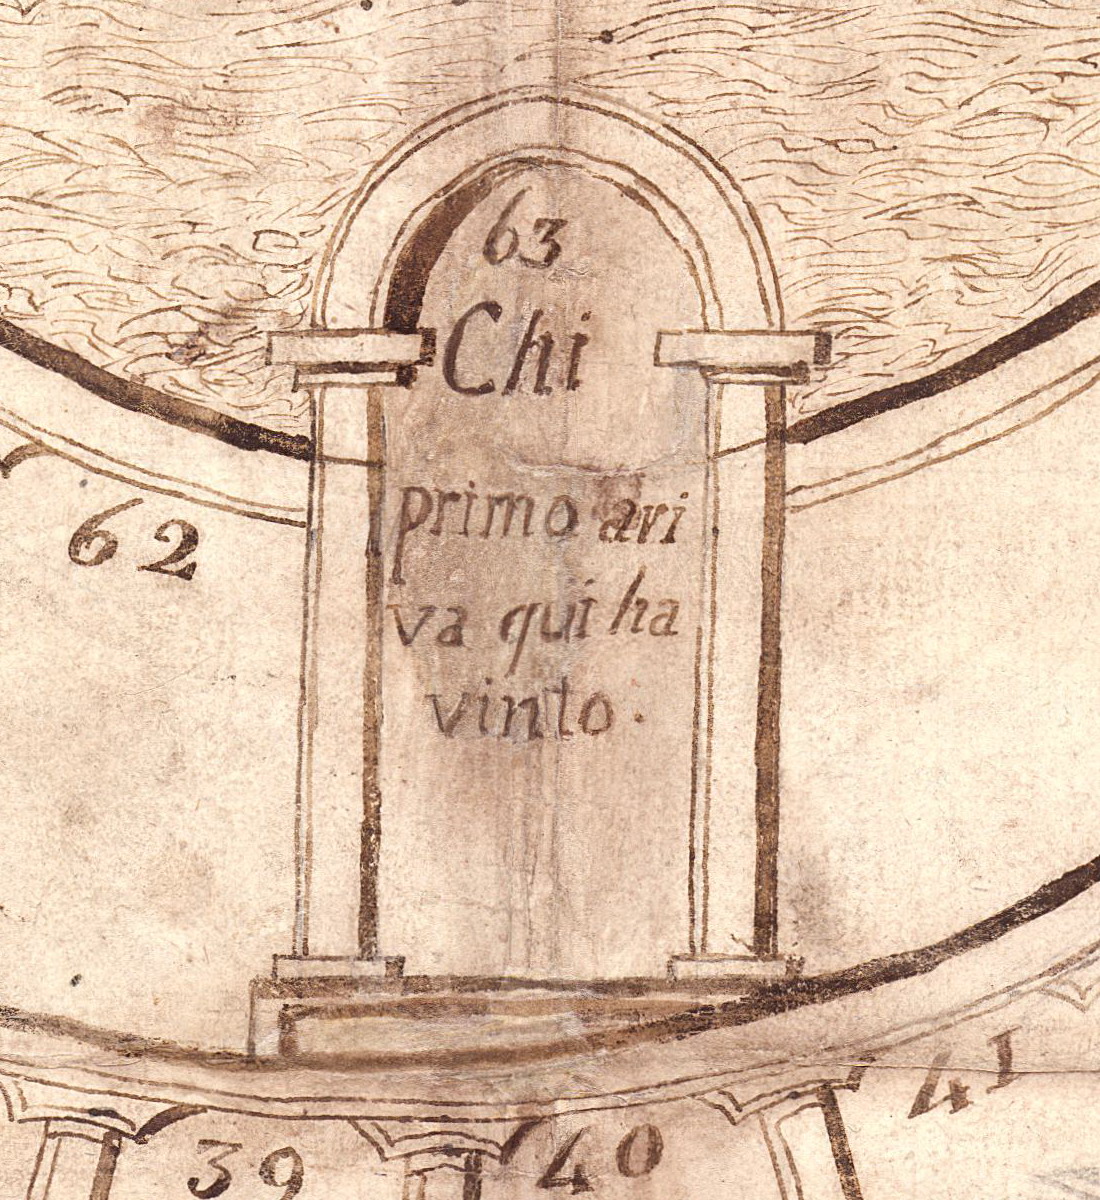 63
Chi
primo ari
va qui ha
vinto.
62
39
40
41